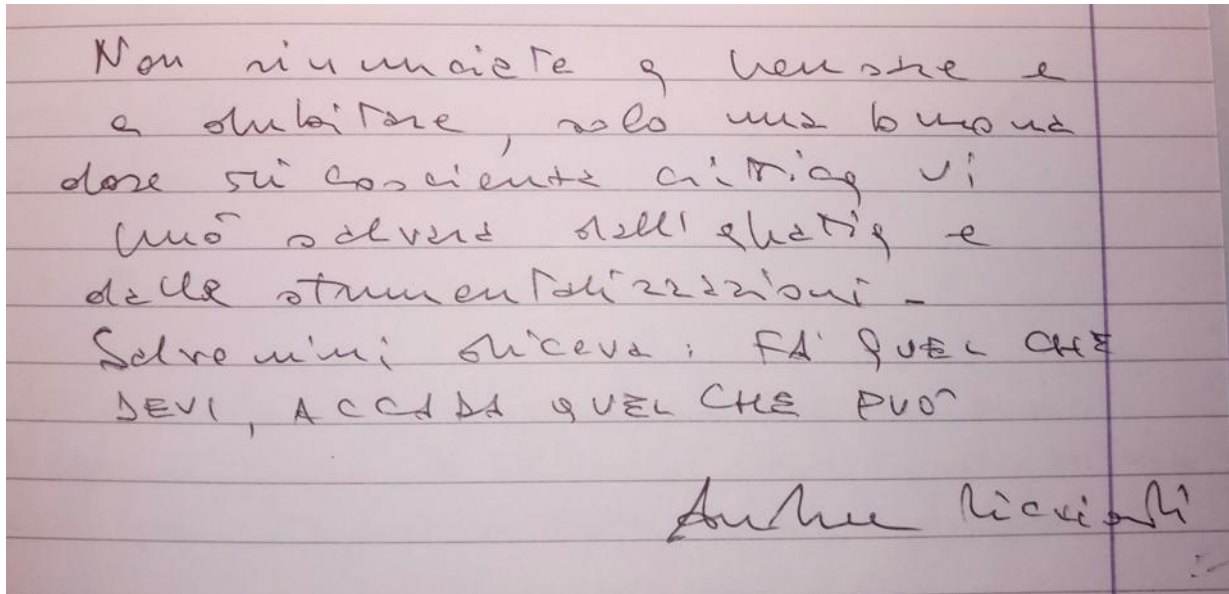 Non rinunciate a pensare e
a dubitare, solo una buona
dose di coscienza critica vi
può salvare dall'apatia e
dalle strumentalizzazioni -
Salvemini diceva: FA' QUEL CHE
DEVI, ACCADA QUEL CHE PUÒ
Andrea